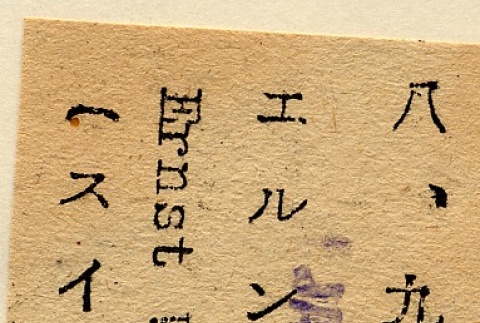 八、九
エルン
Ernst
(スイ